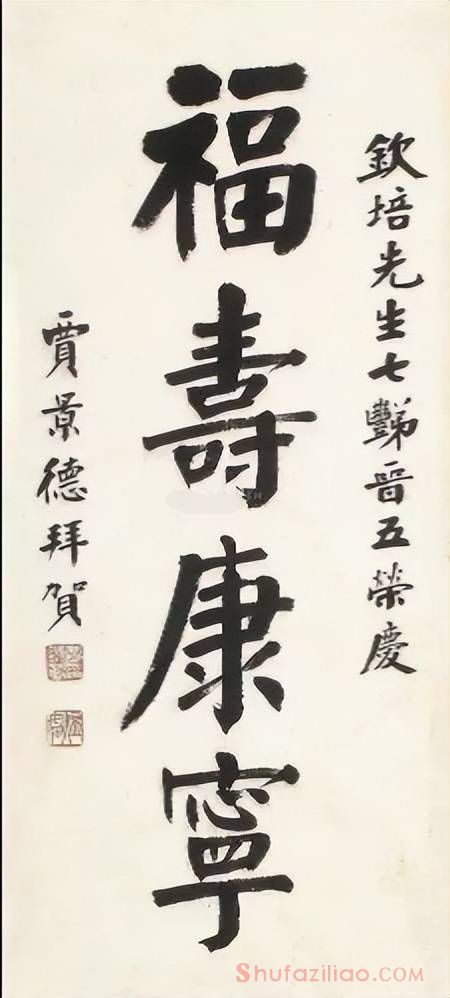 欽培先生七豑晋五榮慶
福壽康寧
賈景德拜賀
Shufaziliao.com